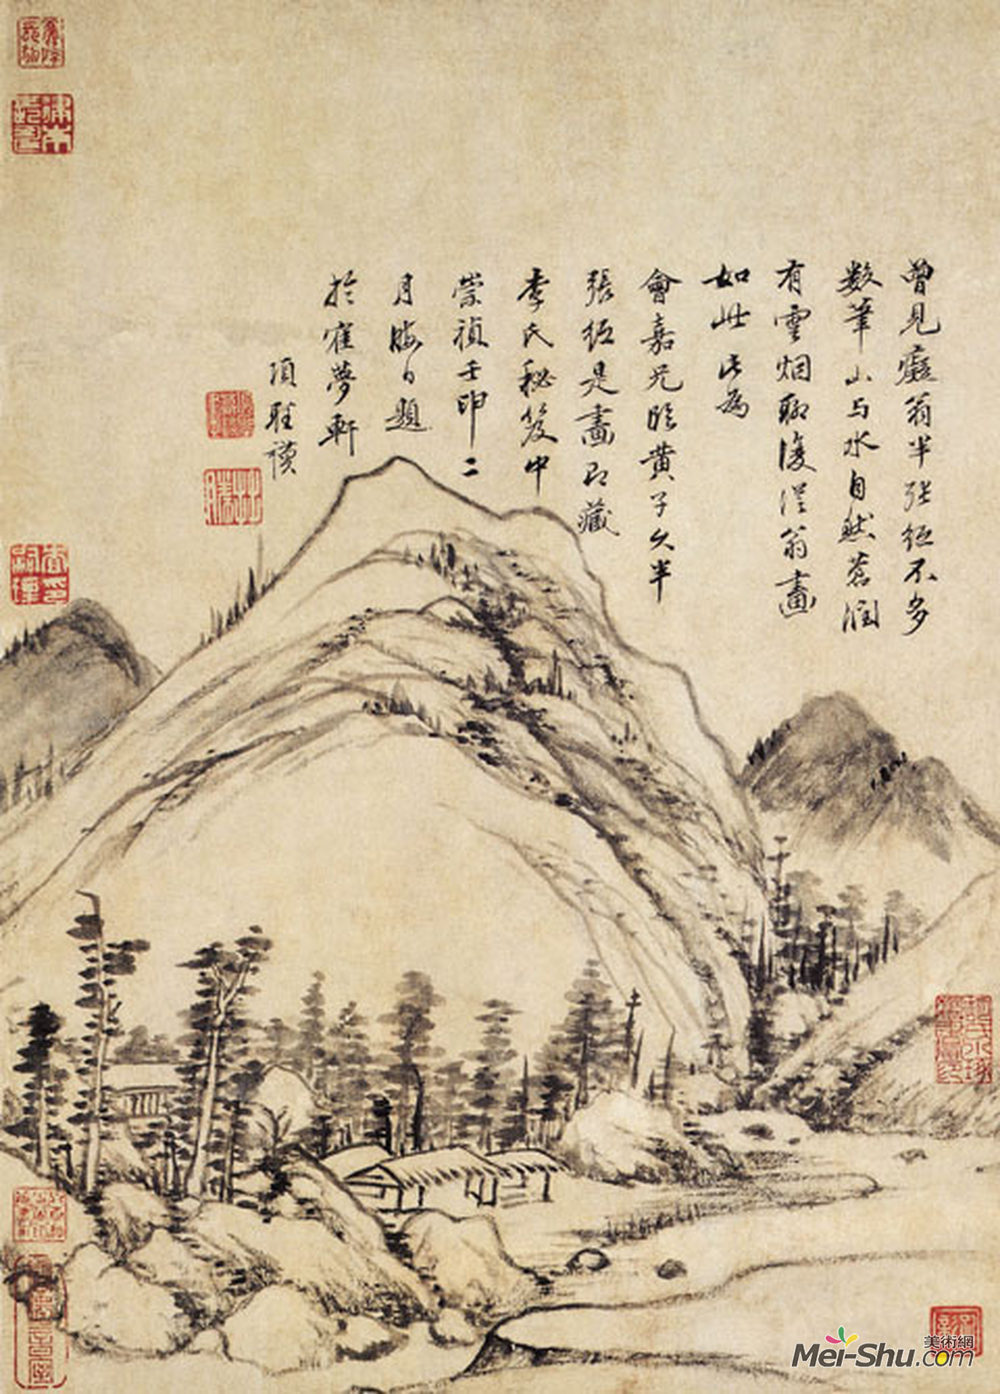 曾見癡翁半張紙不多
数筆山与水自然蒼潤
有雲烟聊復從翁畫
如此此為
會嘉兄臨黄子久半
張紙是畫即藏
李氏秘笈中
崇禎壬申二
月晦日題
於寉夢軒
項聖謨
美術網
Mei-Shu.com